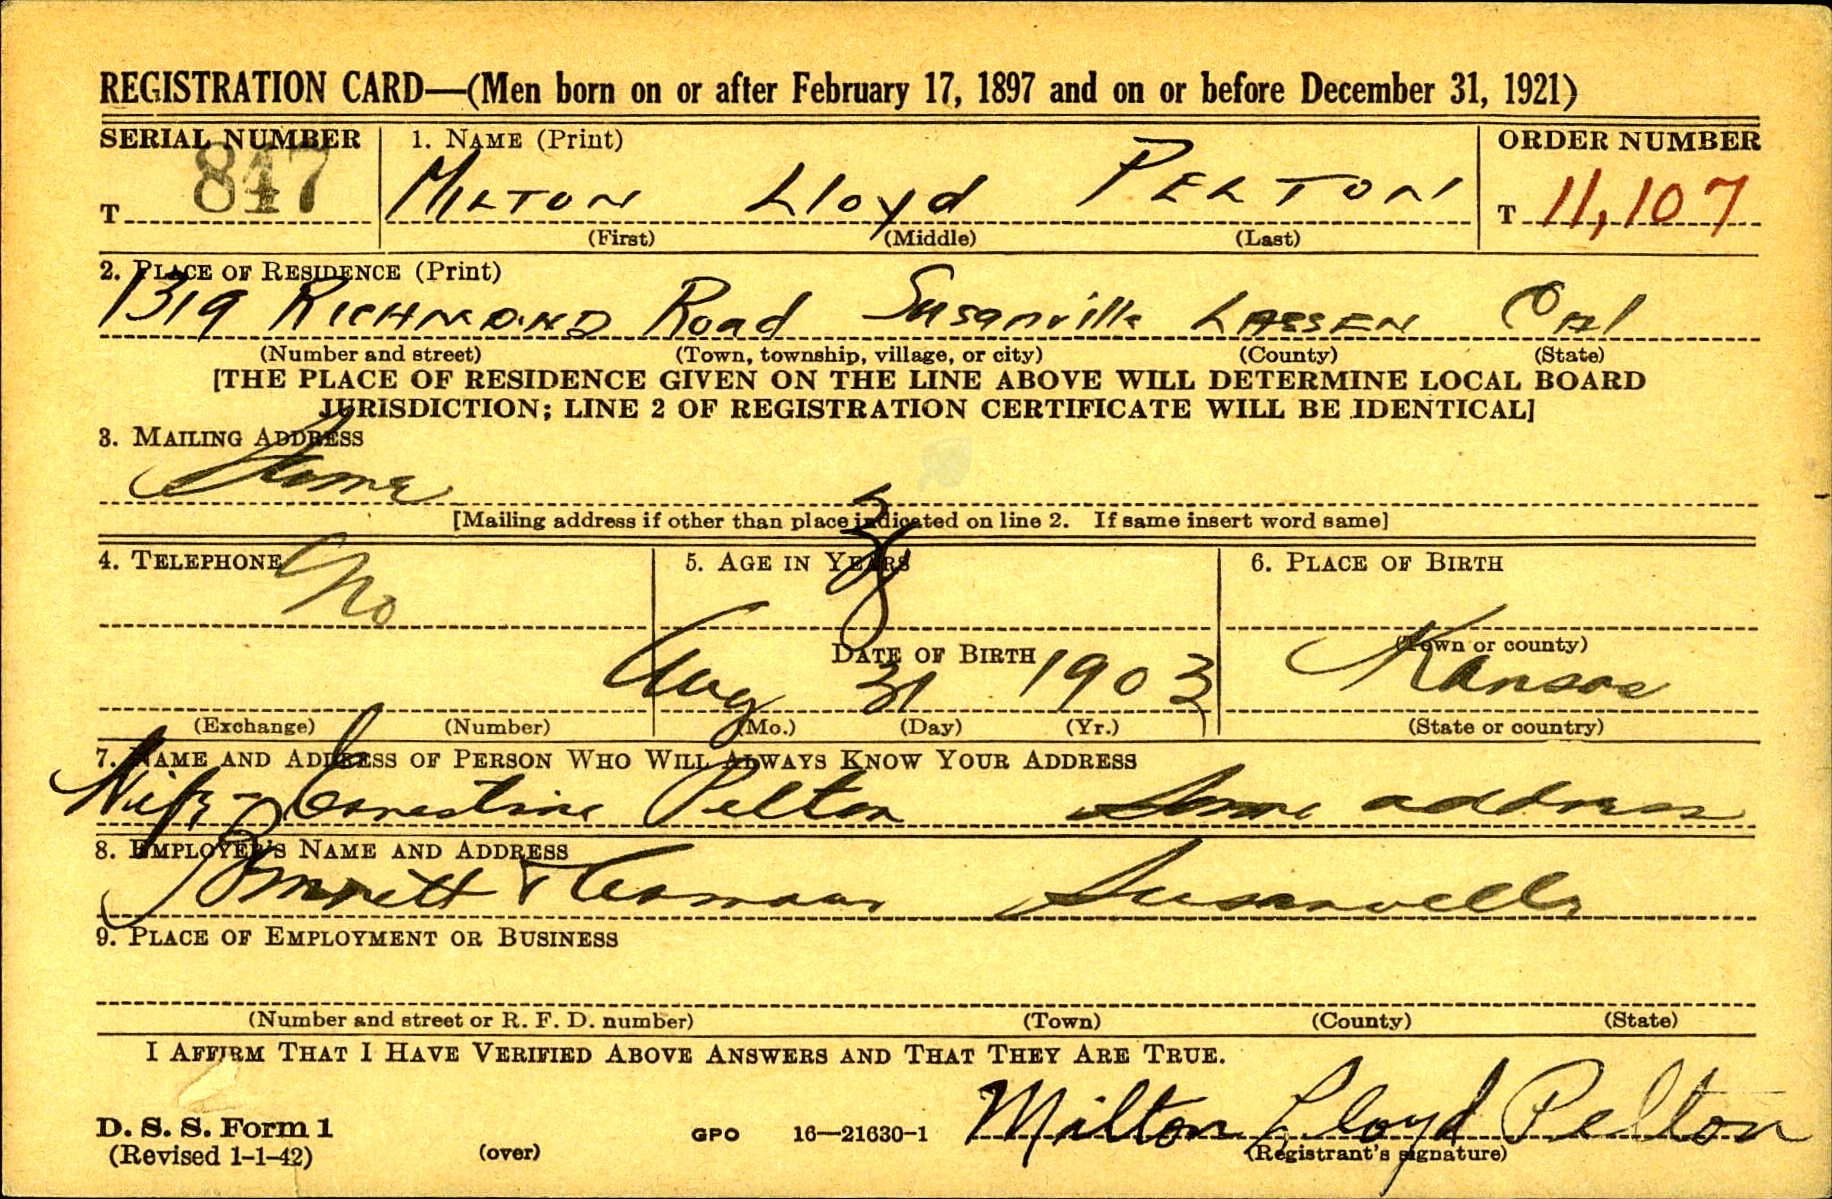 REGISTRATION CARD—(Men born on or after February 17, 1897 and on or before December 31, 1921)
SERIAL NUMBER 1. NAME (Print) ORDER NUMBER
T 847 MILTON Lloyd PELTON T 11,107
(First) (Middle) (Last)
2. PLACE OF RESIDENCE (Print)
1319 RICHMOND Road Susanville LASSEN Cal
(Number and street) (Town, township, village, or city) (County) (State)
[THE PLACE OF RESIDENCE GIVEN ON THE LINE ABOVE WILL DETERMINE LOCAL BOARD
JURISDICTION; LINE 2 OF REGISTRATION CERTIFICATE WILL BE IDENTICAL]
3. MAILING ADDRESS
Same
[Mailing address if other than place indicated on line 2. If same insert word same]
4. TELEPHONE 5. AGE IN YEARS 6. PLACE OF BIRTH
No 38
(Town or county)
DATE OF BIRTH
Aug 31 1903 Kansas
(Exchange) (Number) (Mo.) (Day) (Yr.) (State or country)
7. NAME AND ADDRESS OF PERSON WHO WILL ALWAYS KNOW YOUR ADDRESS
Wife - Pelton Same address
8. EMPLOYER'S NAME AND ADDRESS
Susanville
9. PLACE OF EMPLOYMENT OR BUSINESS
(Number and street or R. F. D. number) (Town) (County) (State)
I AFFIRM THAT I HAVE VERIFIED ABOVE ANSWERS AND THAT THEY ARE TRUE.
Milton Lloyd Pelton
D. S. S. Form 1 GPO 16—21630-1
(Revised 1-1-42) (over) (Registrant's signature)